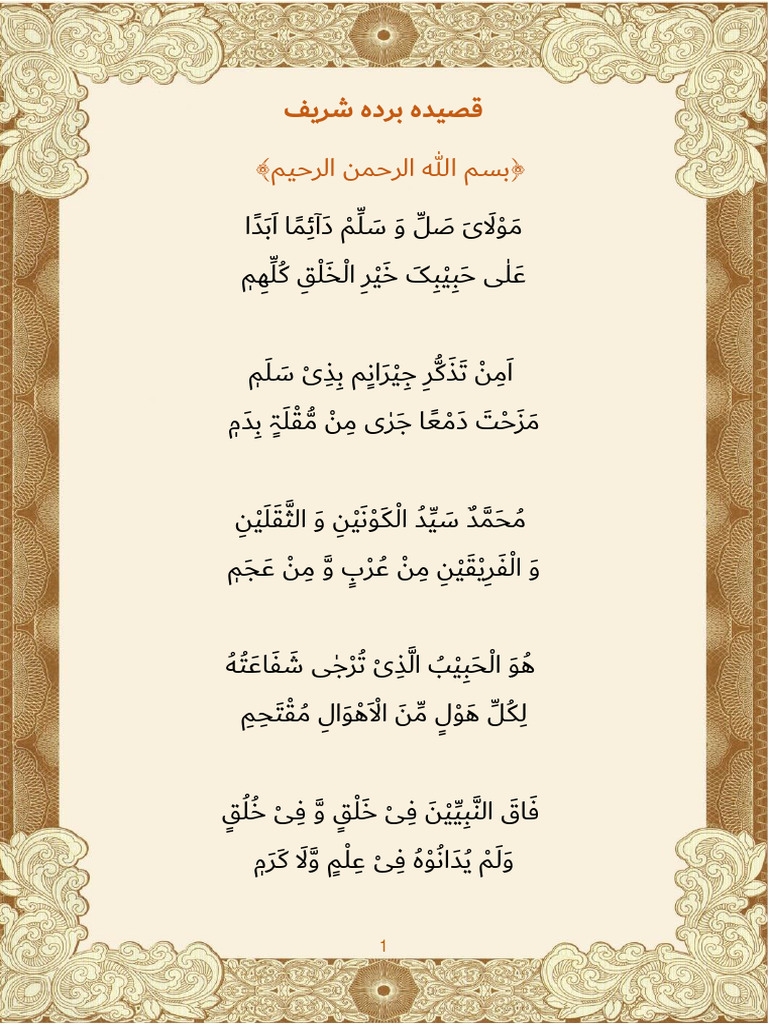 قصیده برده شریف
﴿بسم الله الرحمن الرحیم﴾
مَوْلَایَ صَلِّ وَ سَلِّمْ دَآئِمًا اَبَدًا
عَلٰی حَبِیْبِکَ خَیْرِ الْخَلْقِ کُلِّهِمٖ
اَمِنْ تَذَکُّرِ جِیْرَانٍم بِذِیْ سَلَمٖ
مَزَحْتَ دَمْعًا جَرٰی مِنْ مُّقْلَۃٍ بِدَمٖ
مُحَمَّدٌ سَیِّدُ الْکَوْنَیْنِ وَ الثَّقَلَیْنِ
وَ الْفَرِیْقَیْنِ مِنْ عُرْبٍ وَّ مِنْ عَجَمٖ
هُوَ الْحَبِیْبُ الَّذِیْ تُرْجٰی شَفَاعَتُهُ
لِکُلِّ هَوْلٍ مِّنَ الْاَهْوَالِ مُقْتَحِمِ
فَاقَ النَّبِیِّیْنَ فِیْ خَلْقٍ وَّ فِیْ خُلُقٍ
وَلَمْ یُدَانُوْهُ فِیْ عِلْمٍ وَّلَا کَرَمٖ
1